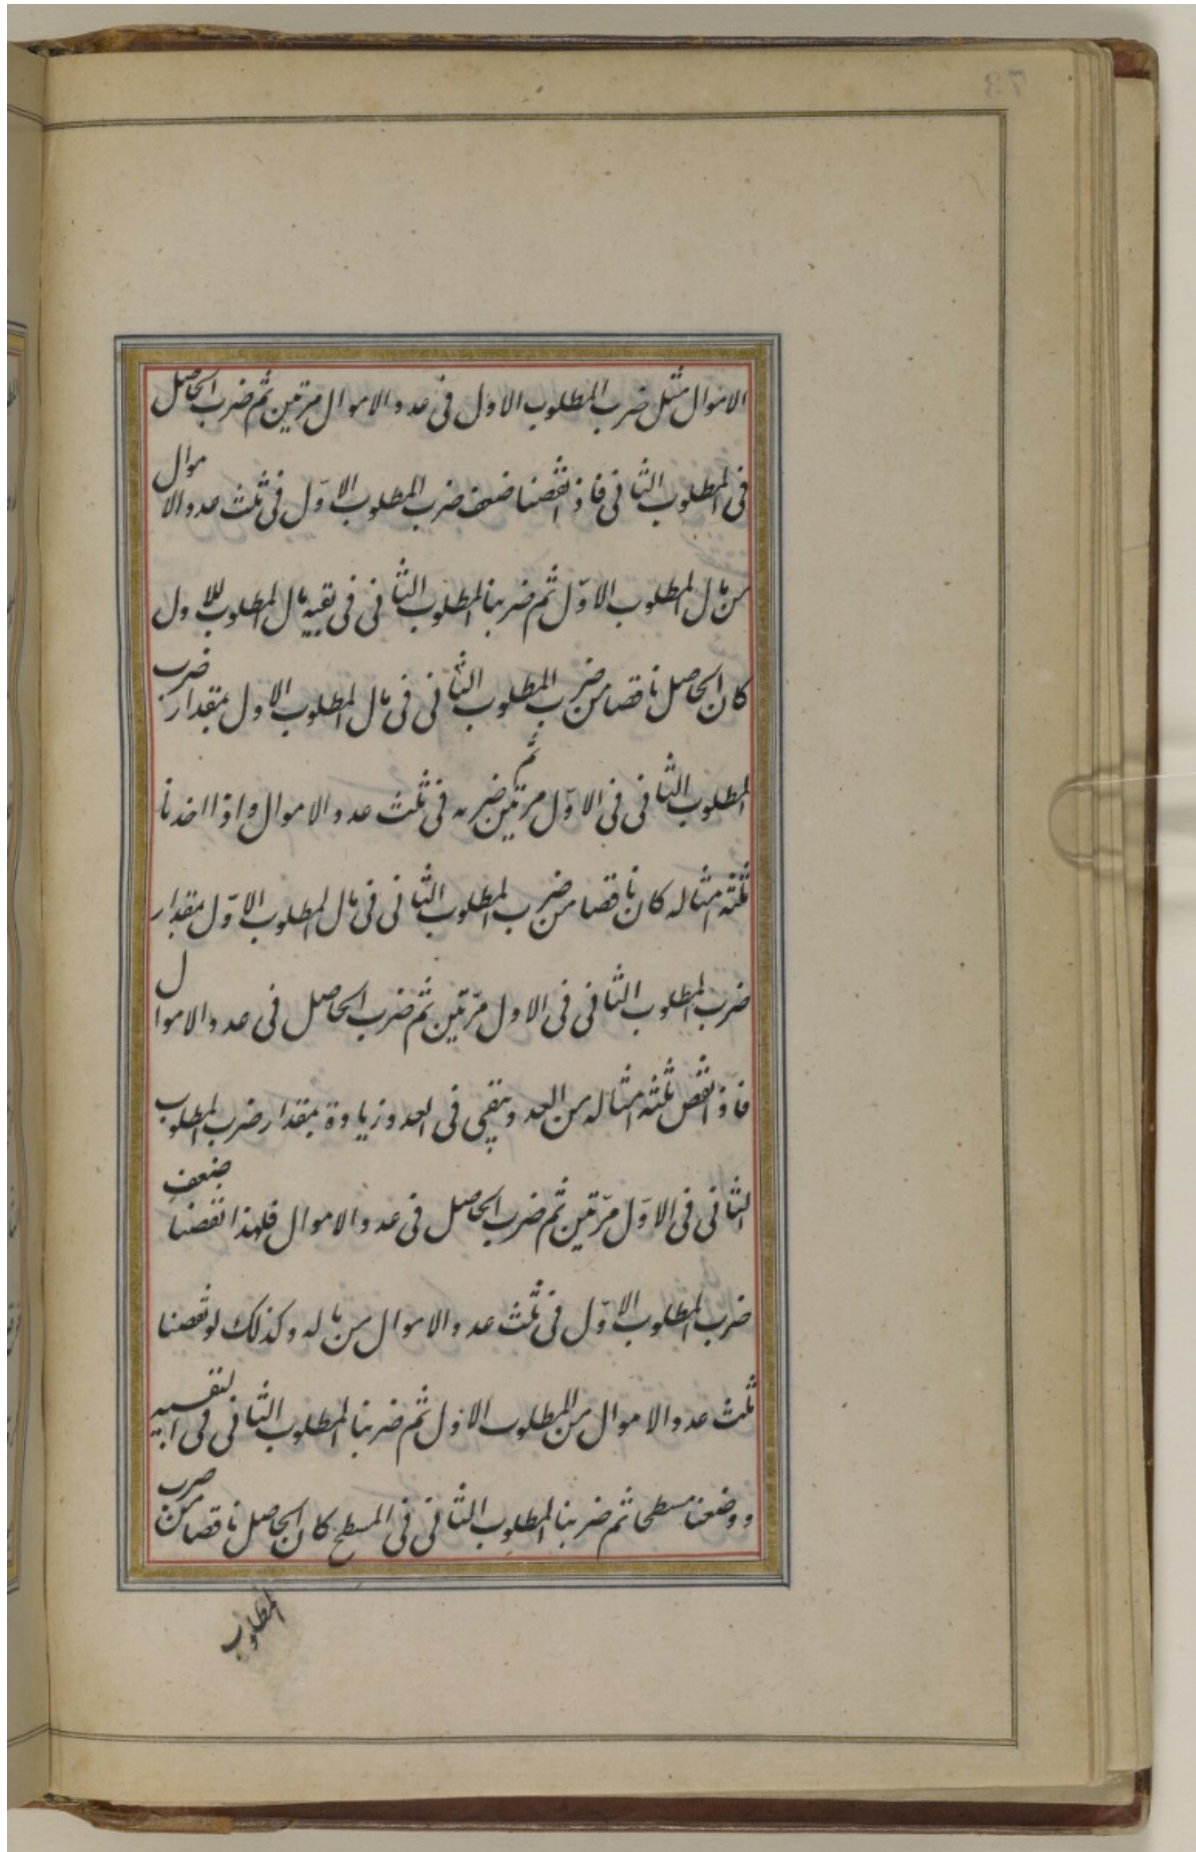 الاموال مثل ضرب المطلوب الاول فى عدد الاموال مرّتين ثم ضرب الحاصل
فى المطلوب الثانى فاذ انقصنا ضعف ضرب المطلوب الاوّل فى ثلث عدد الاموال
من مال المطلوب الاوّل ثم ضربنا المطلوب الثانى فى بقيه مال المطلوب للاول
كان الحاصل ناقصا من ضرب المطلوب الثانى فى مال المطلوب الاول بمقدار ضرب
المطلوب الثانى فى الاوّل مرتين ثم ضربه فى ثلث عدد الاموال و اذا اخذنا
ثلثة امثاله كان ناقصا من ضرب المطلوب الثانى فى مال المطلوب الاوّل بمقدار
ضرب المطلوب الثانى فى الاول مرّتين ثم ضرب الحاصل فى عدد الاموال
فاذ انقص ثلثة امثاله من العدد يبقى فى العدد زيادة بمقدار ضرب المطلوب
الثانى فى الاوّل مرّتين ثم ضرب الحاصل فى عدد الاموال فلهذا نقصنا ضعف
ضرب المطلوب الاوّل فى ثلث عدد الاموال من ماله و كذلك لو نقصنا
ثلث عدد الاموال من المطلوب الاول ثم ضربنا المطلوب الثانى فى
و وضعنا مسطحا ثم ضربنا المطلوب الثانى فى المسطح كان الحاصل ناقصا من ضرب
المطلوب
73